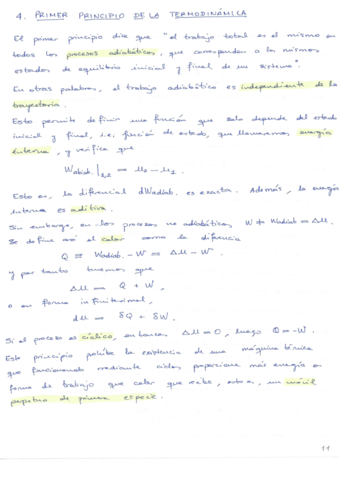 4. PRIMER PRINCIPIO DE LA TERMODINÁMICA
El primer principio dice que "el trabajo total es el mismo en
todos los procesos adiabáticos, que correspondan a los mismos
estados de equilibrio inicial y final de un sistema".
En otras palabras, el trabajo adiabático es independiente de la
trayectoria.
Esto permite definir una función que solo depende del estado
inicial y final, i.e; función de estado, que llamaremos energía
interna, y verifica que
Wadiab.|₁,₂ = U₂ - U₁.
Esto es, la diferencial dWadiab. es exacta. Además, la energía
interna es aditiva.
Sin embargo, en los procesos no adiabáticos, W ≠ Wadiab = ΔU.
Se define así el calor como la diferencia
Q ≡ Wadiab. - W = ΔU - W
y por tanto tenemos que
ΔU = Q + W,
o en forma infinitesimal,
dU = δQ + δW.
Si el proceso es cíclico, entonces ΔU = 0, luego Q = -W.
Este principio prohíbe la existencia de una máquina térmica
que funcionando mediante ciclos, proporcione más energía en
forma de trabajo que calor que recibe, esto es, un móvil
perpetuo de primera especie.
11